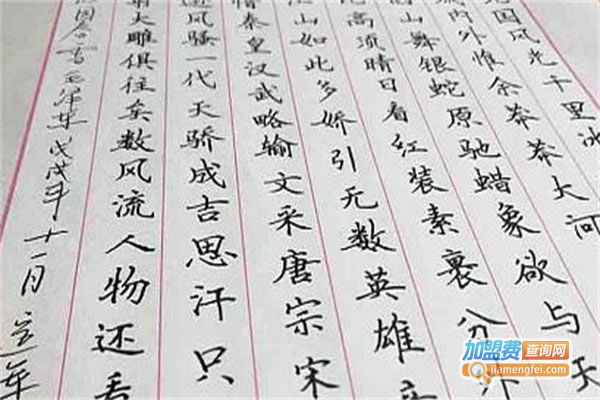 国风光千里冰
内外惟余莽莽大河
山舞银蛇原驰蜡象欲与天
高须晴日看红装素裹分外
江山如此多娇引无数英雄
惜秦皇汉武略输文采唐宗宋
逊风骚一代天骄成吉思汗只
大雕俱往矣数风流人物还看
园春雪毛泽东戊戌年十一月
加盟费查询网
jiamengfei.com